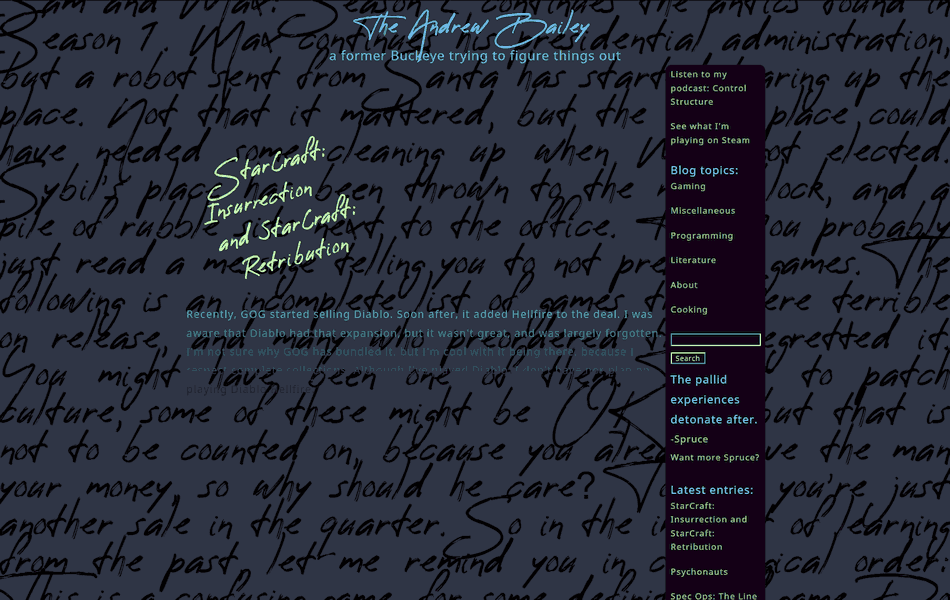 The Andrew Bailey
a former Buckeye trying to figure things out
StarCraft:
Insurrection
and StarCraft:
Retribution
Recently, GOG started selling Diablo. Soon after, it added Hellfire to the deal. I was
aware that Diablo had that expansion, but it wasn't great, and was largely forgotten.
I'm not sure why GOG has bundled it, but I'm cool with it being there, because I
playing Diablo Hellfire
Listen to my
podcast: Control
Structure
See what I'm
playing on Steam
Blog topics:
Gaming
Miscellaneous
Programming
Literature
About
Cooking
Search
The pallid
experiences
detonate after.
-Spruce
Want more Spruce?
Latest entries:
StarCraft:
Insurrection and
StarCraft:
Retribution
Psychonauts
Spec Ops: The Line
Season 1. Max administration,
but a robot sent from Santa has up the
place. Not that it mattered, but the place could
have needed some cleaning up when elected.
Sybil's place has been thrown to the and a
pile of rubble is next to the office. probably
just read a telling you to not games. The
following is an incomplete list of terrible
on release,
You might have been one of to patch
culture, some of these might be OK, but that is
not to be counted on, because you the man
your money, so why should he care? you're just
another sale in the quarter. So in the of learning
from the past, let me remind order.